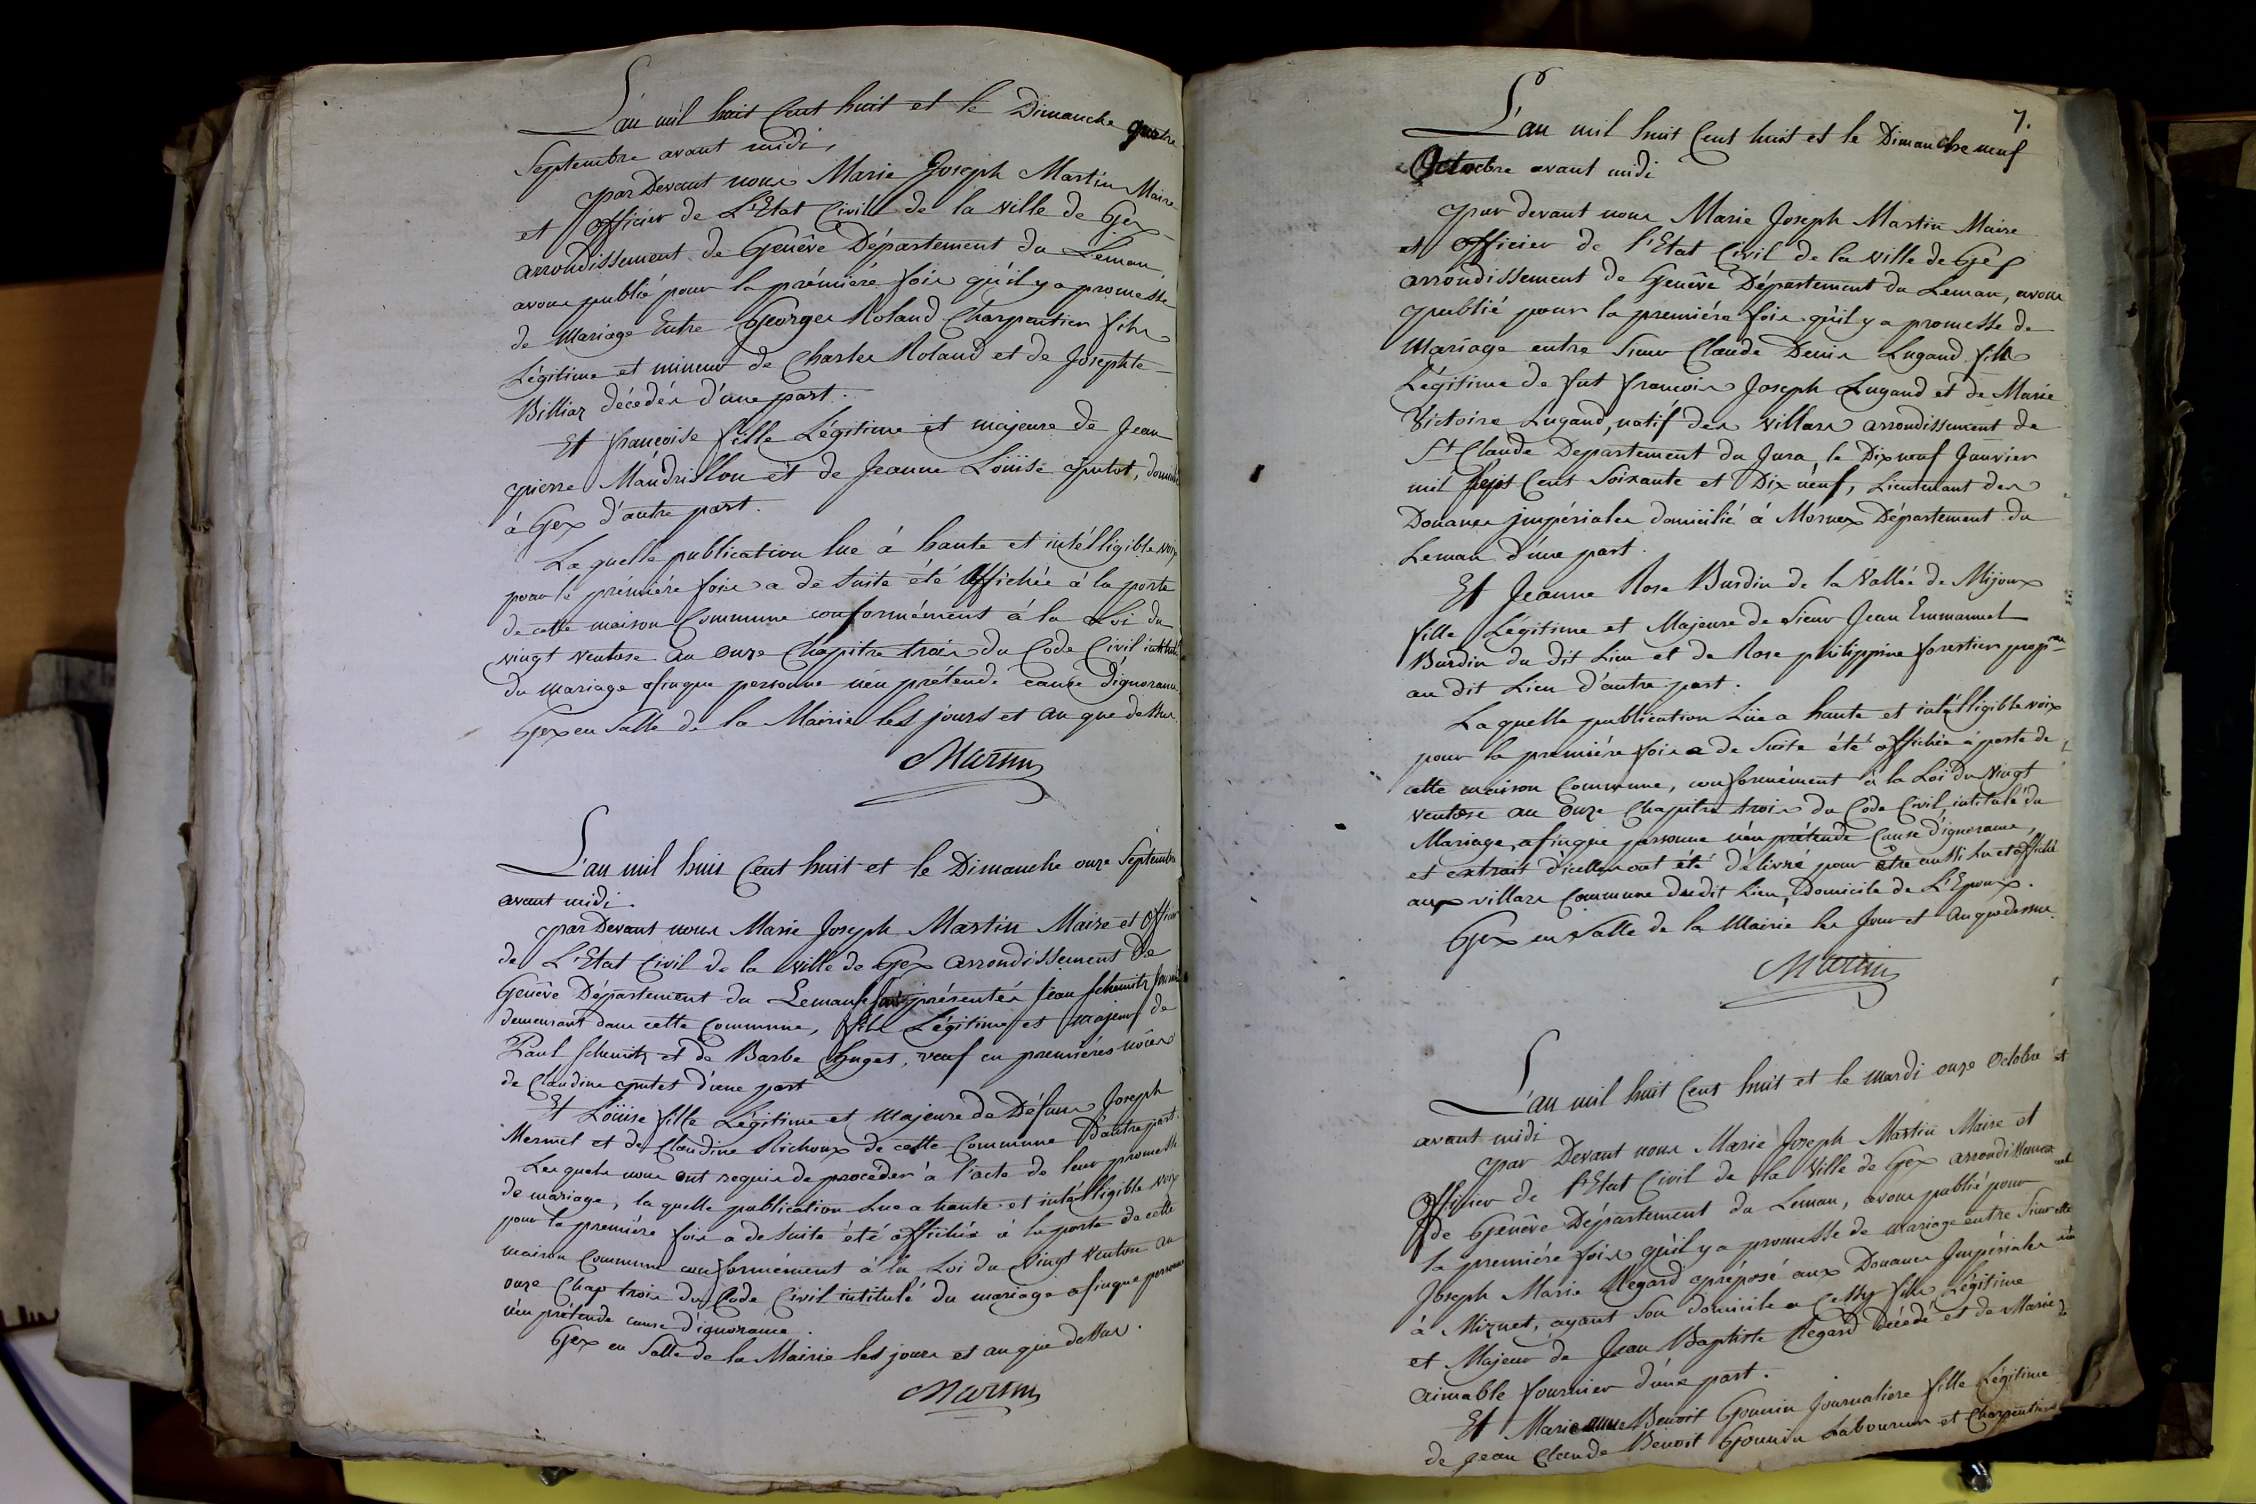 L'an mil huit Cent huit et le Dimanche quatre
Septembre avant midi,
par Devant nous Marie Joseph Martin Maire
et officier de L'Etat Civil de la ville de Gex
arrondissement de Genêve Département du Leman,
avons publié pour la prémiére fois qu'il y a promesse
de mariage Entre Georges Roland Charpentier fils
Légitime et mineur de Charles Roland et de Josephte
Billiar décédés d'une part.
Et françoise fille Légitime et majeure de Jean
pierre Mandrillon et de Jeanne Loüise putot,
à Gex d'autre part.
La quelle publication lue à haute et intélligible voix
pour la prémiére fois a de suite été Affichée à la porte
de cette maison Commune conformément à la Loi du
vingt ventose an onze Chapitre trois du Code Civil intitulé
du mariage afinque personne n'en prétende cause d'ignorance
Gex en Salle de la Mairie les jours et an que dessus.
Martin
L'an mil huit Cent huit et le Dimanche onze Septembre
avant midi.
par Devant nous Marie Joseph Martin Maire et Officier
de L'Etat Civil de la ville de Gex arrondissement de
Genêve Département du Leman, sont présentés Jean Schemitz
demeurant dans cette Commune, fils Légitime et majeur de
Paul Schemitz et de Barbe huget, veuf en premiéres nôces
de Claudine putet d'une part
Et Loüise fille Légitime et majeure de Défunt Joseph
Mermet et de Claudine Richoux de cette Commune D'autre part.
Les quels nous ont requis de procéder à l'acte de leur promesse
de mariage, la quelle publication Lue a haute et intélligible voix
pour la premiére fois a de suite été affichée à la porte de cette
maison Commune conformément à la Loi du Vingt Ventose an
onze Chap trois du Code Civil intitulé du mariage afinque personne
n'en prétende cause d'ignorance.
Gex en Salle de la Mairie les jours et an que dessus.
Martin
7.
L'an mil huit Cent huit et le Dimanche neuf
Octobre avant midi
par devant nous Marie Joseph Martin Maire
et officier de l'Etat Civil de la ville de Gex
arrondissement de Genêve Département du Leman, avons
publié pour la premiére fois qu'il y a promesse de
Mariage entre Sieur Claude Denis Lugand fils
Légitime de fut françois Joseph Lugand et de Marie
Victoire Lugand, natif des villars arrondissement de
St Claude Departement du Jura le Dixneuf Janvier
mil sept Cent Soixante et Dix neuf, Lieutenant des
Douanes impériales domicilié à Mornex Département du
Leman d'une part.
Et Jeanne Rose Burdin de la Vallée de Mijoux
fille Légitime et Majeure de Sieur Jean Emmanuel
Burdin du dit Lieu et de Rose philippine forestier prop.re
au dit Lieu d'autre part.
La quelle publication Lüe a haute et intélligible voix
pour la premiére fois a de Suite été affichée à porte de
cette maison Commune, conformément à la Loi du Vingt
ventose an onze Chapitre trois du Code Civil intitulé du
Mariage, afinque personne n'en prétende Cause d'ignorance,
et extrait d'icelle ont été délivré pour être aussi Lu et affiché
aux villars Commune dudit Lieu, Domicile de L'Epoux.
Gex en Salle de la Mairie les Jour et An que dessus.
Martin
L'an mil huit Cent huit et le mardi onze Octobre
avant midi
par Devant nous Marie Joseph Martin Maire et
Officier de l'Etat Civil de la Ville de Gex arrondissement
de Genêve Département du Leman, avons publié pour
la premiére fois qu'il y a promesse de mariage entre Sieur
Joseph Marie Regard préposé aux Douanes Impériales
à Miznet, ayant Son domicile a Cessy fils Légitime
et Majeur de Jean Baptiste Regard décédé et de Marie
aimable fournier d'une part.
Et Marie anne Benoit Gounin Journaliere fille Légitime
de Jean Claude Benoit Gounin Laboureur et Charpentier